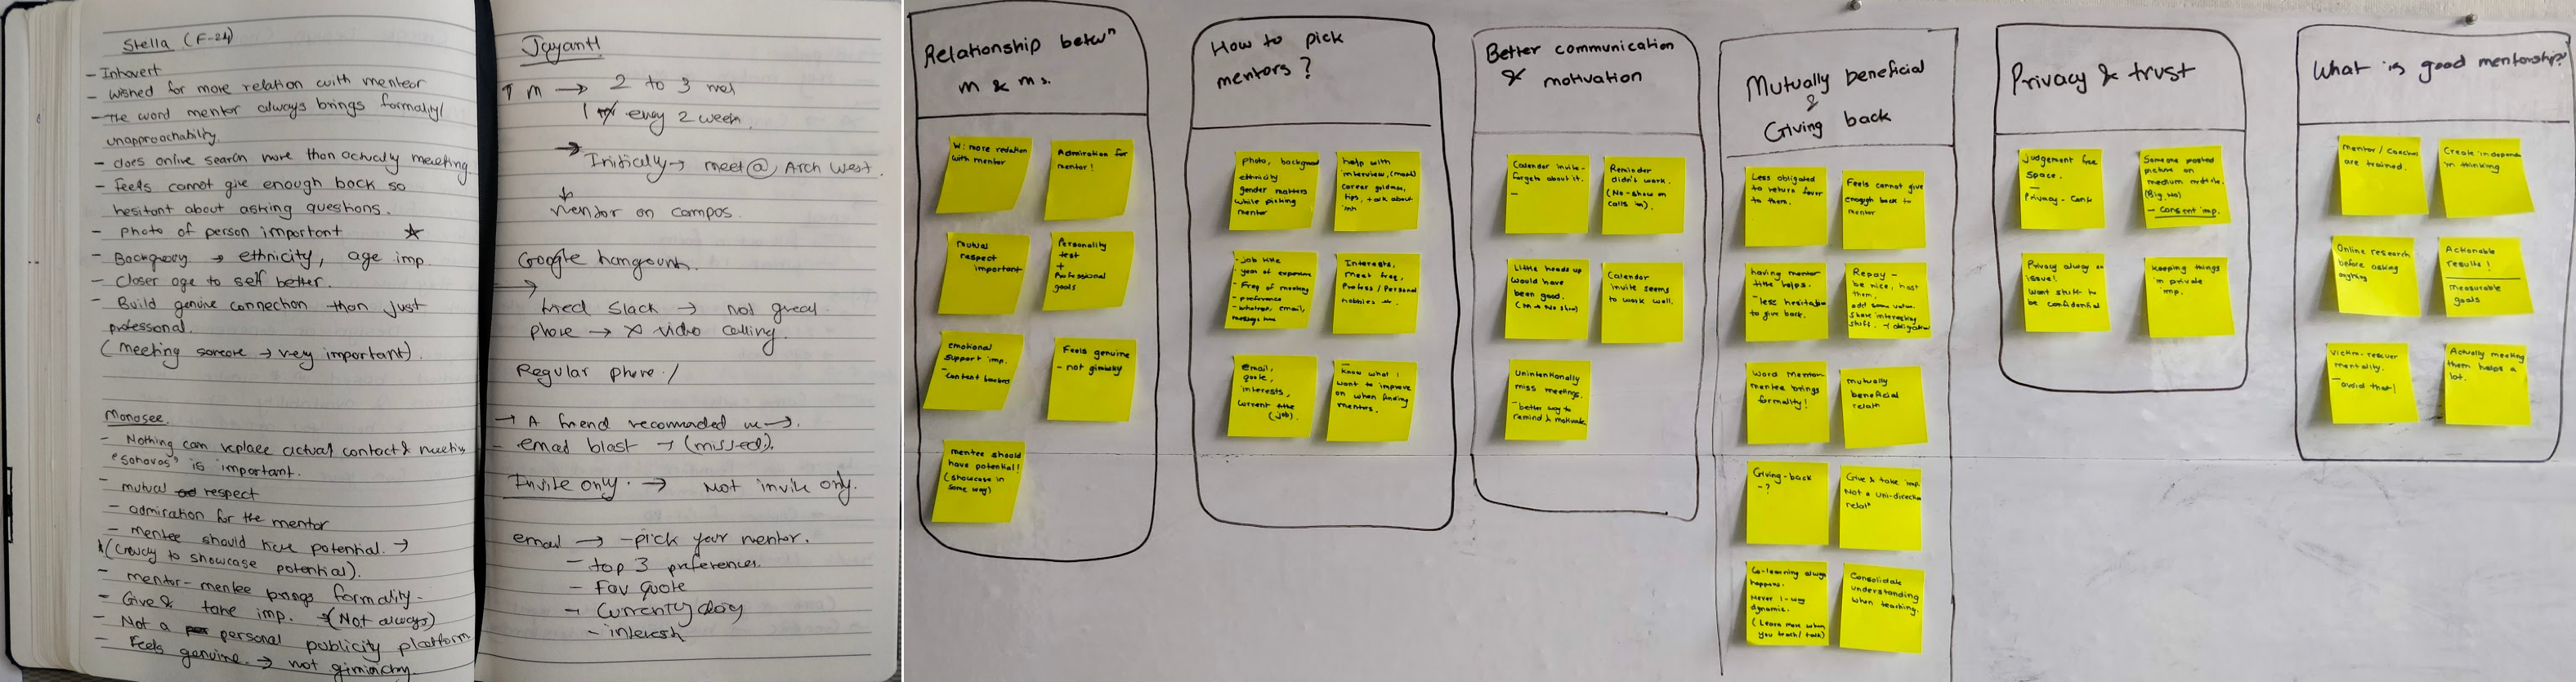 Stella (F-24)
- Introvert
- wished for more relation with mentor
- The word mentor always brings formality/
unapproachability.
- does online search more than actually meeting
- Feels cannot give enough back so
hesitant about asking questions.
- photo of person important ☆
→ ethnicity, age imp.
- Closer age to self better.
- Build genuine connection than just
professional.
(meeting someone → very important).
Manasee.
- Nothing can replace actual contact & meeting
is important.
- mutual respect
- admiration for the mentor
- mentee should have potential. →
to showcase potential).
- mentor-mentee brings formality-
- Give & take imp. → (Not always)
- Not a personal publicity platform
- Feels genuine. → not gimicky.
Jayanti
↑ m → 2 to 3
1 every 2 week.
→ Initially → meet @ Arch West.
↓
Mentor on campos.
Google hangouts.
→
tried Slack → not great.
phone → x video calling.
Regular phone /
→ A friend recommended →.
- email blast → (missed).
Invite only. → Not invite only.
email → - pick your mentor.
- top 3 preferences.
- Fav Quote
- Currently doing
- interest
Relationship betwⁿ
m & ms.
W: more relation
with mentor
Admiration for
mentor!
mutual
respect
important
Personality
test
+
Professional
goals
emotional
support imp.
- content based
Feels genuine
- not gimicky
mentee should
have potential!
(showcase in
some way)
How to pick
mentors?
photo, background
ethnicity
gender matters
while picking
mentor
help with
interview, (mock)
career guidance,
tips, talk about
job title
year of experience
- Freq of meeting
- preference
- whatsapp, email,
Interests,
Meet freq,
Profess / Personal
hobbies
email,
quote,
interests,
current
(job).
Know what I
want to improve
on when finding
mentors.
Better communication
& motivation
Calendar invite-
forgets about it.
-
Reminder
didn't work.
(No-show on
calls too).
Little heads up
would have
been good.
Calendar
invite seems
to work well.
Unintentionally
miss meetings.
- better way to
remind & motivate
Mutually beneficial
&
Giving back
Less obligated
to return favor
to them.
Feels cannot give
enough back to
mentor
having mentor
title helps.
- less hesitation
to give back.
Repay -
be nice, host
them,
add some value.
share interesting
stuff.
Word Mentor-
mentee brings
formality!
mutually
beneficial
relatⁿ
Giving-back
- ?
Give & take imp.
Not a uni-direction
relatⁿ
Co-learning always
happens.
Never 1-way
dynamic.
(Learn more when
you teach/talk)
Consolidate
understanding
when teaching.
Privacy & trust
Judgement free
space.
-
Privacy - Conf
Someone posted
picture on
medium article.
(Big No)
- consent imp.
Privacy always an
issue!
Want stuff to
be confidential
keeping things
in private
imp.
What is good mentorship?
Mentor / Coaches
are trained.
Create independent
in thinking
Online research
before asking
anything
Actionable
results!
measurable
goals
Victim-rescuer
mentality.
- avoid that!
Actually meeting
them helps a
lot.